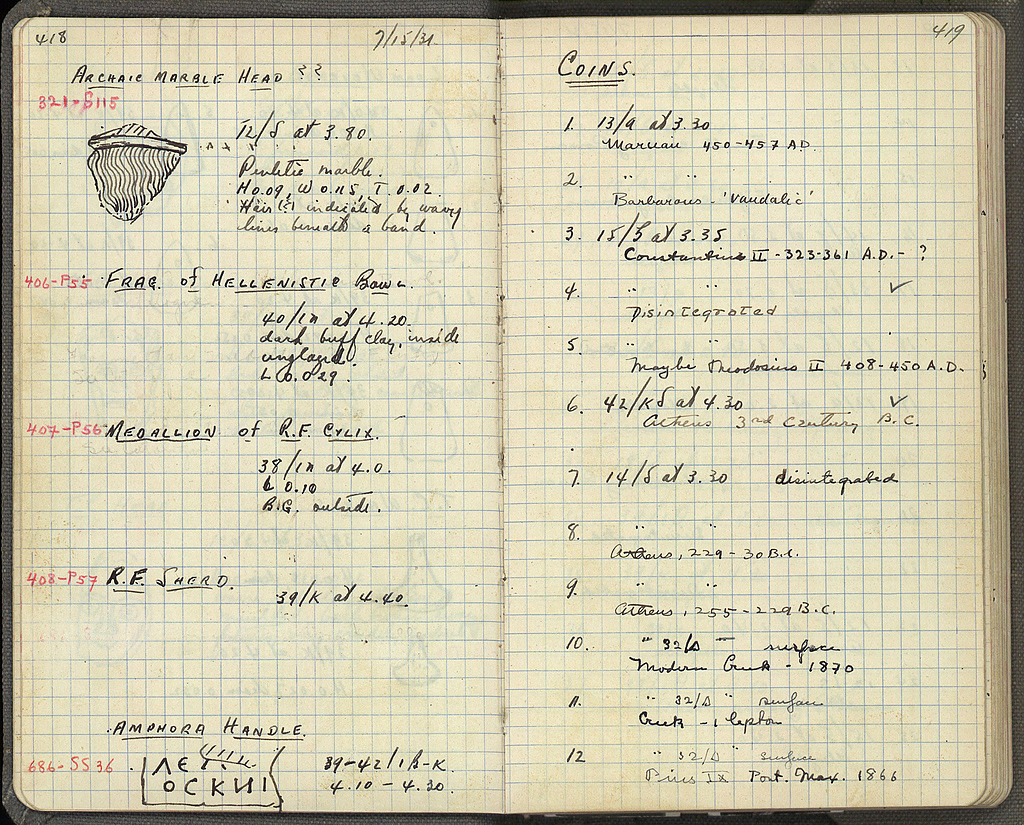 418
7/15/31.
ARCHAIC MARBLE HEAD ??
321-S115
12/ at 3.80.
Pentelic marble.
H 0.09, W 0.115, T 0.02
Hair indicated by wavy
lines beneath a band.
406-P55 FRAG. of HELLENISTIC BOWL.
40/ at 4.20.
dark buff clay, inside
unglazed.
L 0.029.
407-P56 MEDALLION of R.F. CYLIX.
38/ at 4.0.
L 0.10
B.G. outside.
408-P57 R.F. SHERD.
39/K at 4.40.
AMPHORA HANDLE.
686-SS36
ΛΕ
ΟΣΚΝΙ
39-42/ -K.
4.10 – 4.30.
419
COINS.
1. 13/ at 3.30
Marcian 450-457 A.D.
2. " "
Barbarous - 'Vandalic'
3. 15/ at 3.35
Constantius II - 323-361 A.D. - ?
4. " " ✓
Disintegrated
5. " "
Maybe Theodosius II 408-450 A.D.
6. 42/ at 4.30 ✓
Athens 3rd Century B.C.
7. 14/ at 3.30 disintegrated
8. " "
Athens, 229-30 B.C.
9. " "
Athens, 255-229 B.C.
10. " 32/Δ – surface
Modern Greek - 1870
11. " 32/Δ " surface
Greek - 1 lepton
12 " 32/Δ " surface
Pius IX Pont. Max. 1866